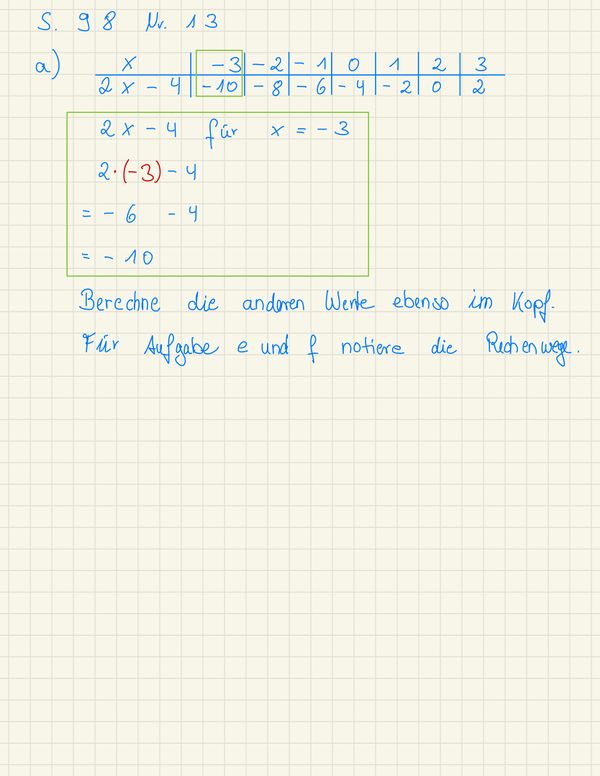 S. 98 Nr. 13
a) x | -3 | -2 | -1 | 0 | 1 | 2 | 3
2x - 4 | -10 | -8 | -6 | -4 | -2 | 0 | 2
2x - 4 für x = -3
2·(-3) - 4
= - 6 - 4
= - 10
Berechne die anderen Werte ebenso im Kopf.
Für Aufgabe e und f notiere die Rechenwege.